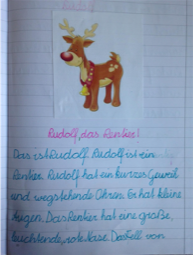 Rudolf
Rudolf, das Rentier!
Das ist Rudolf. Rudolf ist ein
Rentier. Rudolf hat ein kurzes Geweih
und wegstehende Ohren. Er hat kleine
Augen. Das Rentier hat eine große,
leuchtende, rote Nase. Das Fell von